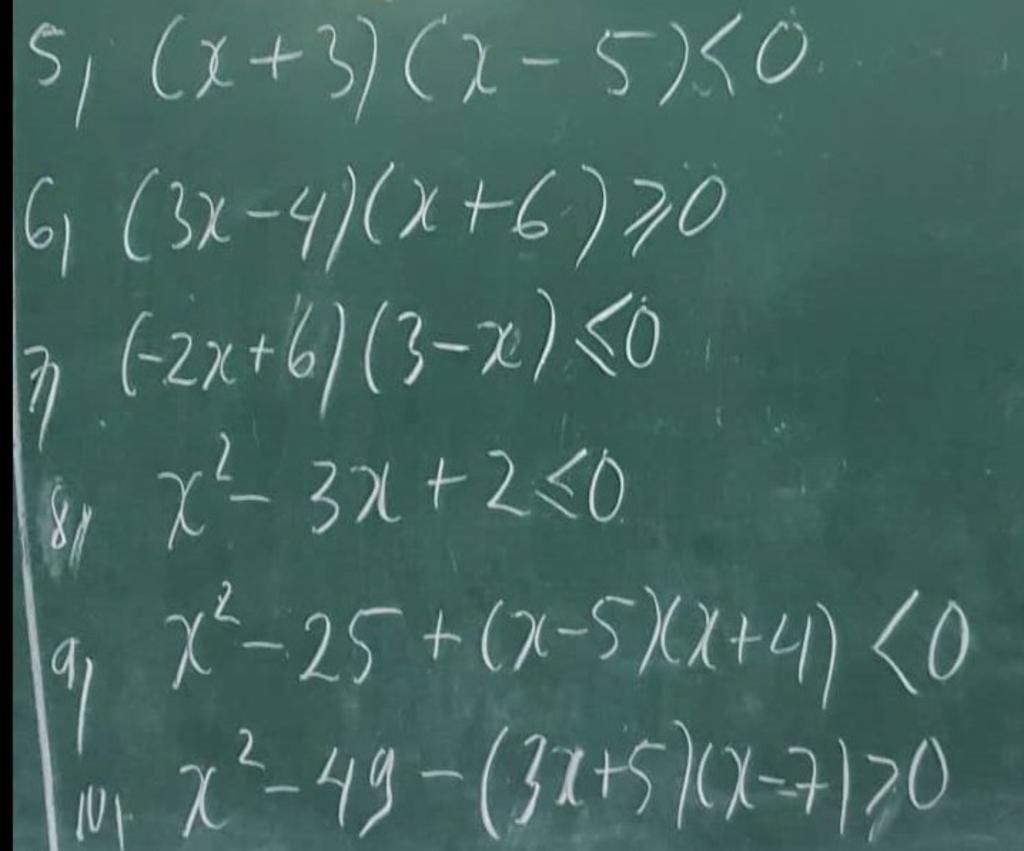 5, (x+3)(x-5)<0
6, (3x-4)(x+6)⩾0
7, (-2x+6)(3-x)⩽0
8, x²-3x+2⩽0
9, x²-25+(x-5)(x+4)<0
10, x²-49-(3x+5)(x-7)⩾0